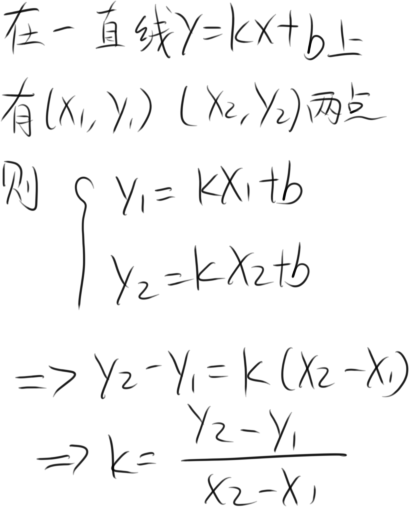 在一直线y=kx+b上
有(x₁,y₁) (x₂,y₂)两点
则 { y₁=kx₁+b
y₂=kx₂+b
=> y₂-y₁=k(x₂-x₁)
=> k= (y₂-y₁)/(x₂-x₁)